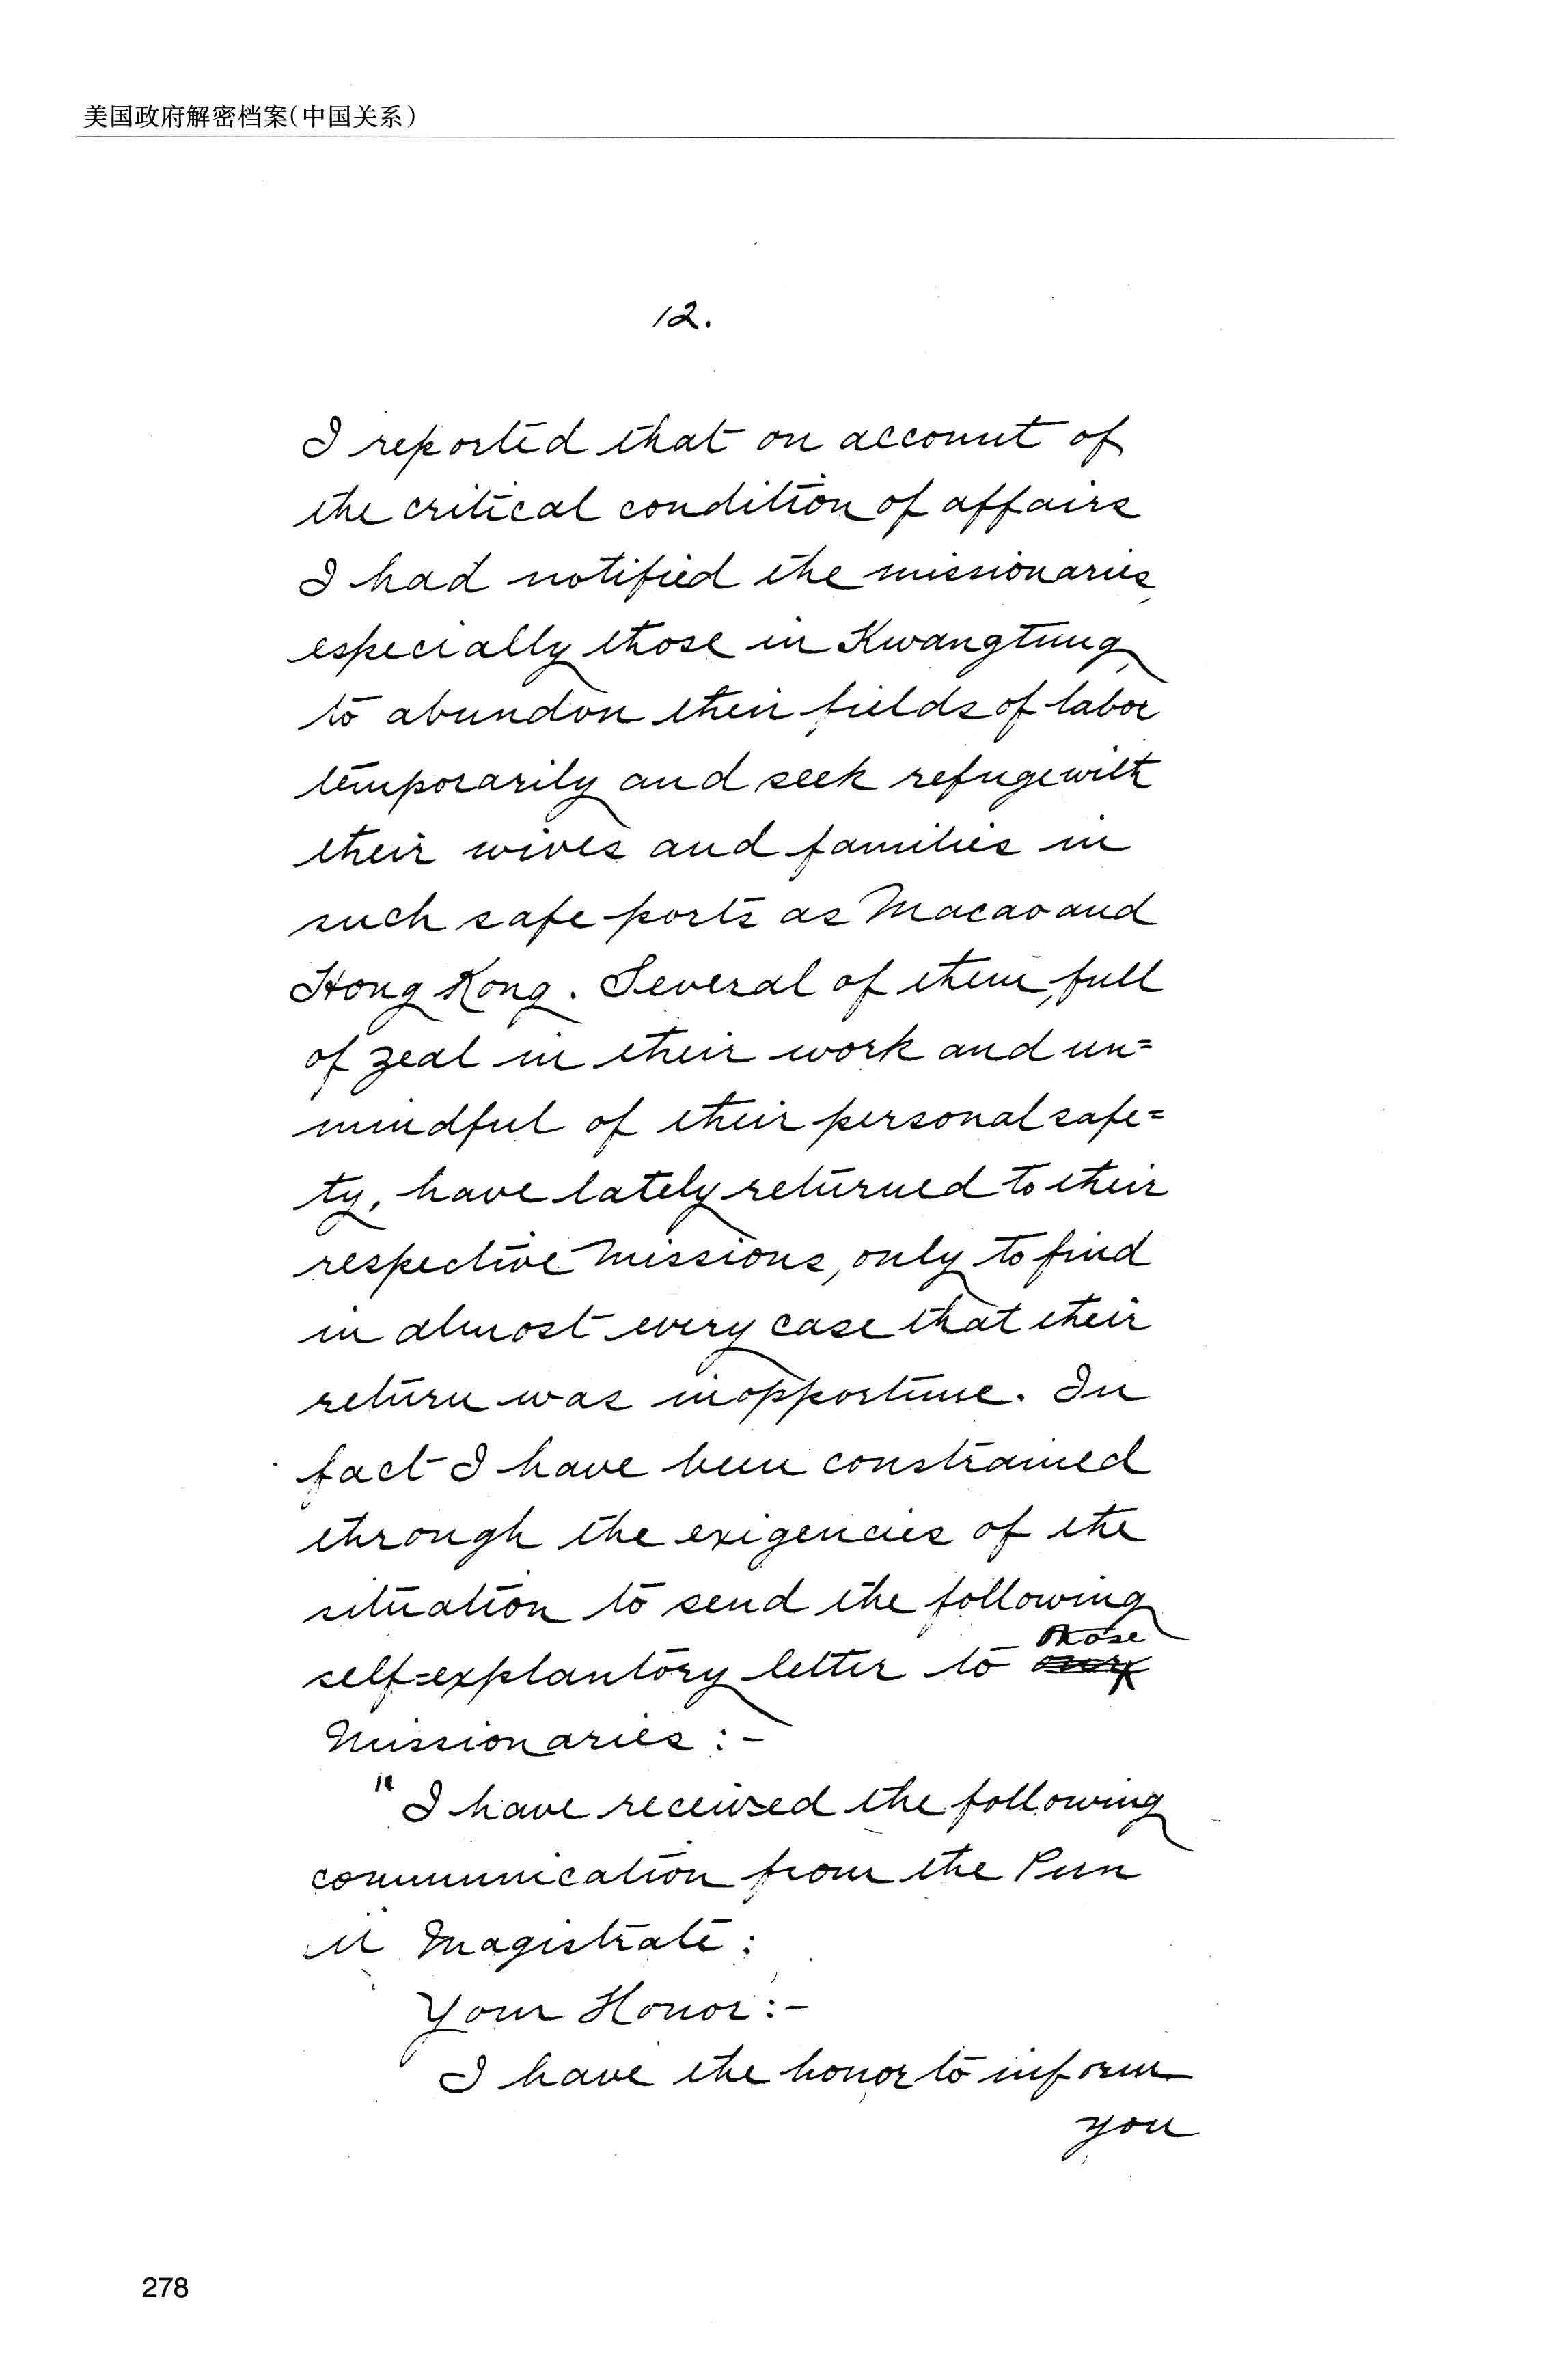 美国政府解密档案(中国关系)
12.
I reported that on account of
the critical condition of affairs
I had notified the missionaries,
especially those in Kwangtung,
to abandon their fields of labor
temporarily and seek refuge with
their wives and families in
such safe ports as Macao and
Hong Kong. Several of them, full
of zeal in their work and un=
mindful of their personal safe=
ty, have lately returned to their
respective missions, only to find
in almost every case that their
return was inopportune. In
fact I have been constrained
through the exigencies of the
situation to send the following
self=explantory letter to those
Missionaries:-
"I have received the following
communication from the Pun
Magistrate:
Your Honor:-
I have the honor to inform
you
278